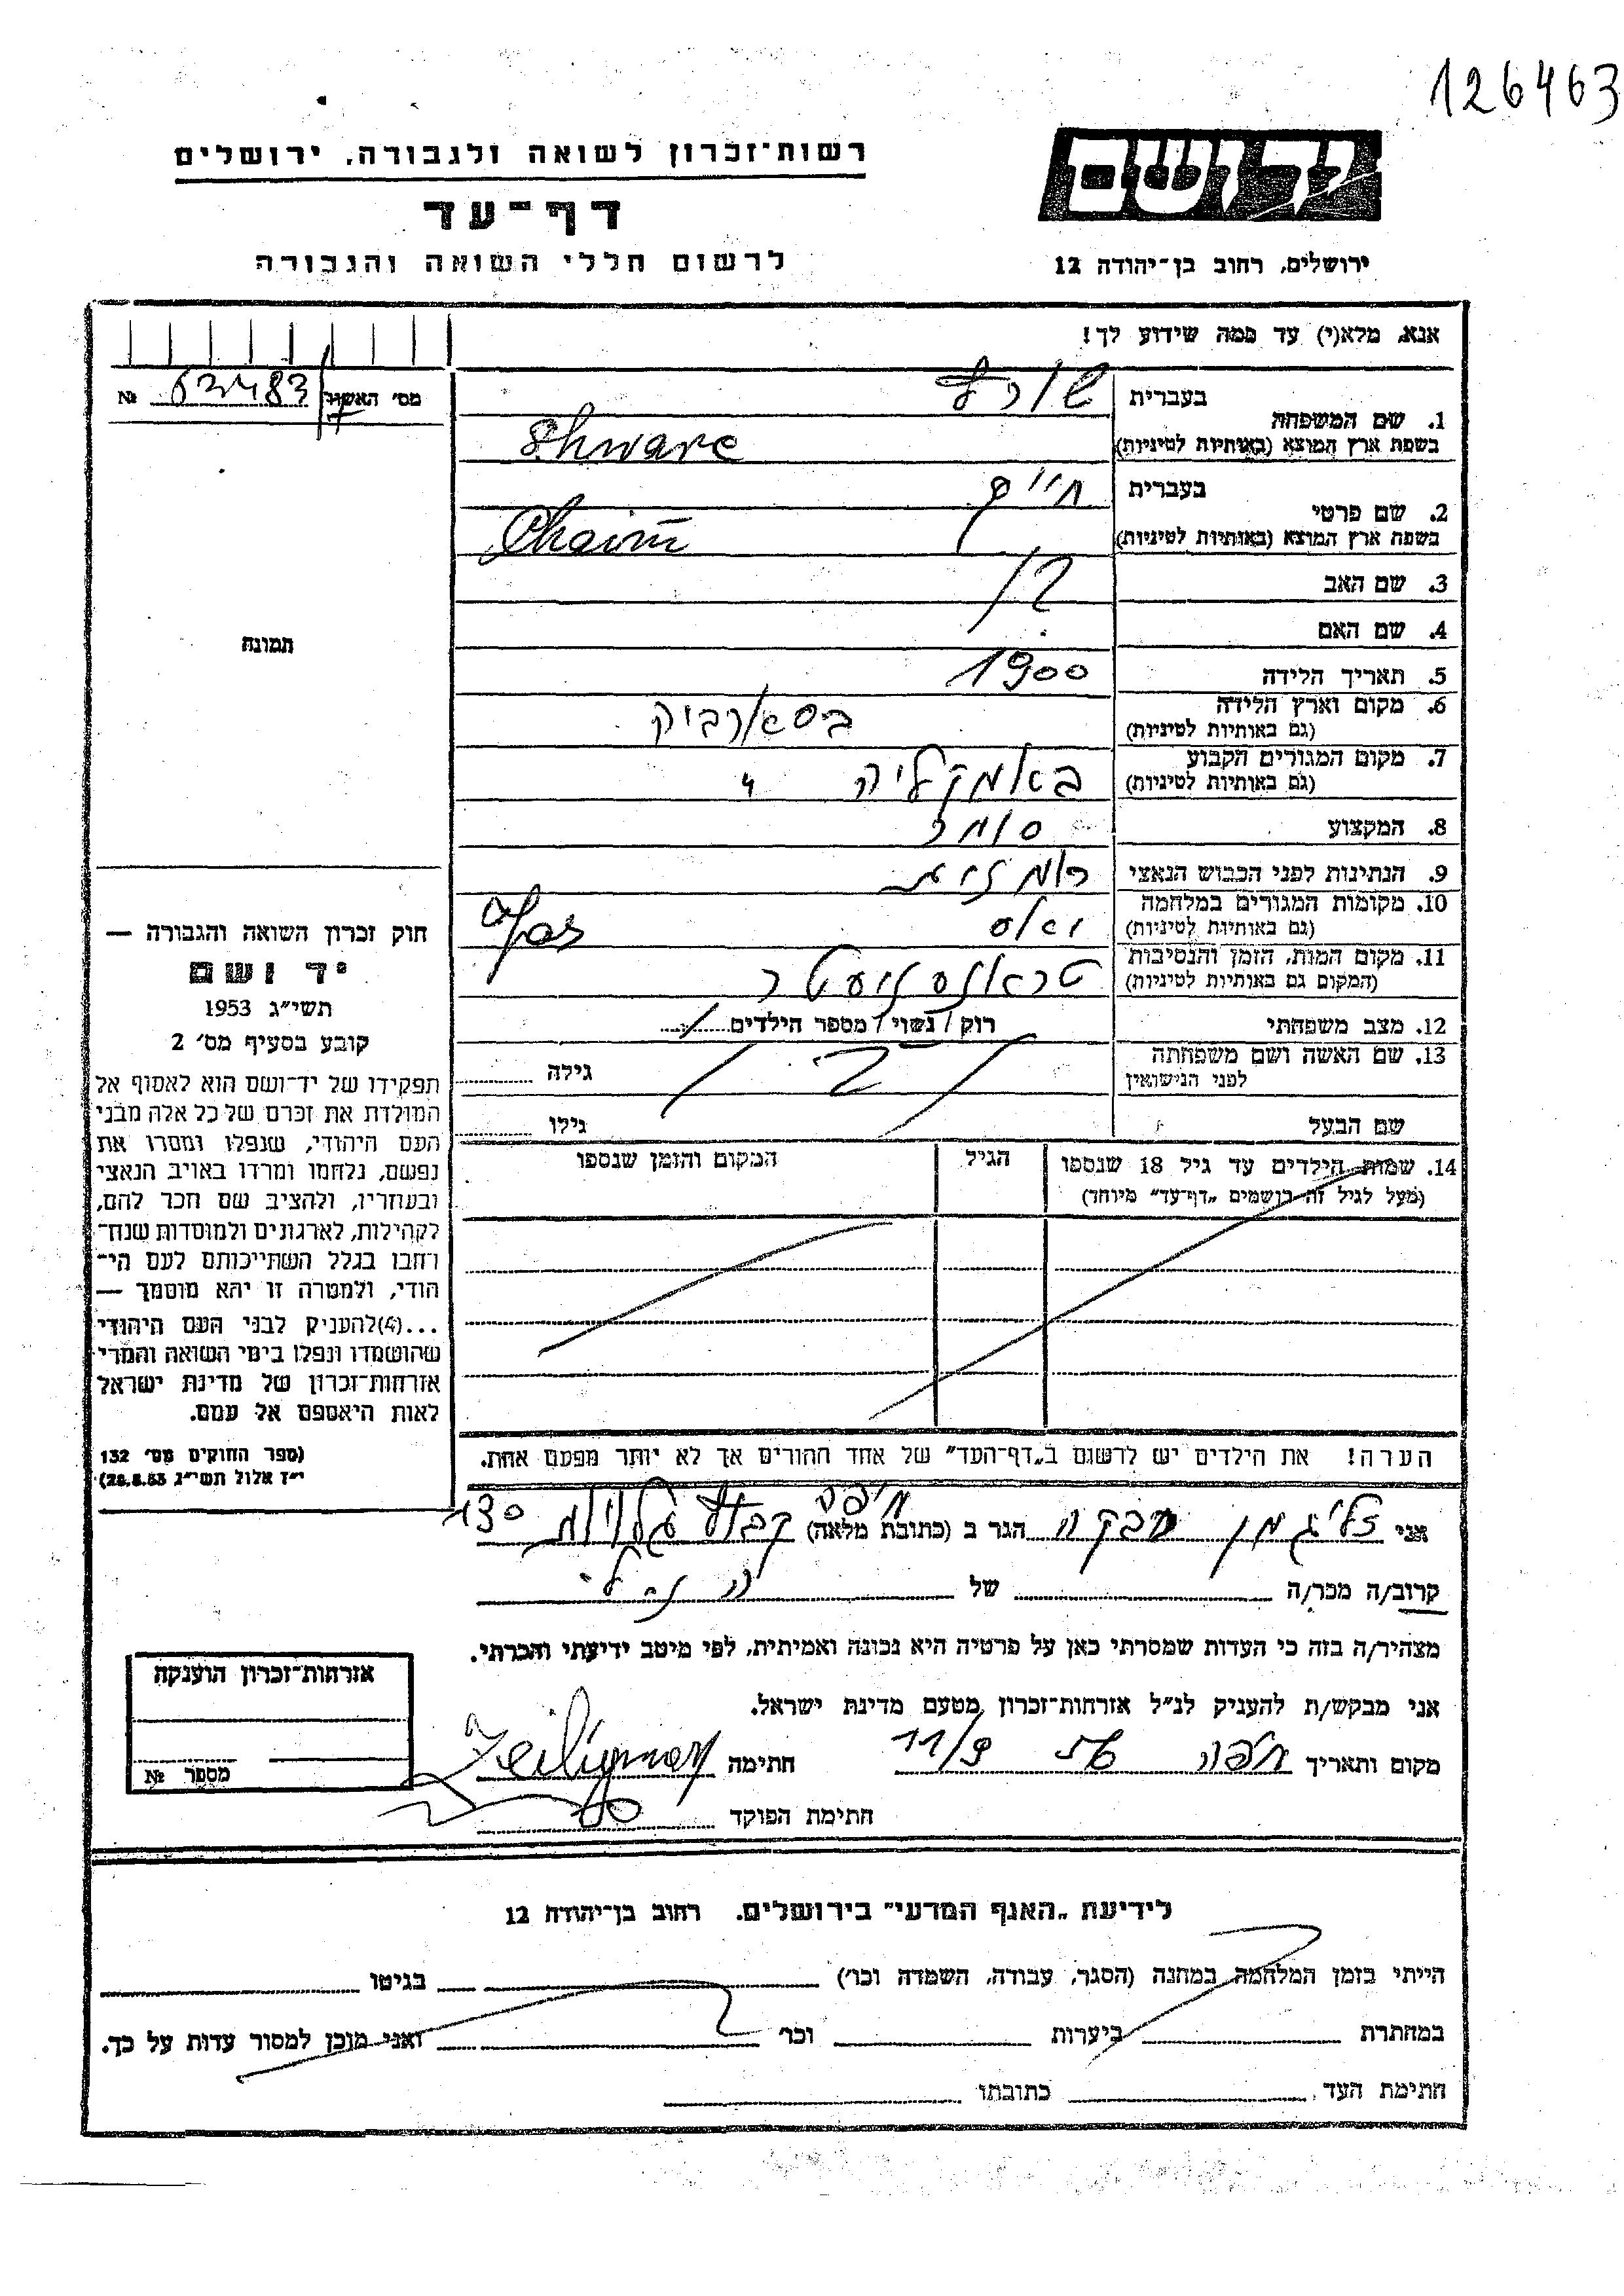 126463
רשות־זכרון לשואה ולגבורה, ירושלים
יד ושם
דף־עד
לרשום חללי השואה והגבורה
ירושלים, רחוב בן־יהודה 12
אנא, מלא(י) עד כמה שידוע לך!
מס׳ האשור № 63483
1. שם המשפחה
בעברית
בשפת ארץ המוצא (באותיות לטיניות)
2. שם פרטי
בעברית חיים
בשפת ארץ המוצא (באותיות לטיניות) Chaim
3. שם האב
4. שם האם
5. תאריך הלידה 1900
6. מקום וארץ הלידה
(גם באותיות לטיניות)
7. מקום המגורים הקבוע
(גם באותיות לטיניות)
8. המקצוע סוחר
9. הנתינות לפני הכבוש הנאצי
10. מקומות המגורים במלחמה
(גם באותיות לטיניות)
11. מקום המות, הזמן והנסיבות
(המקום גם באותיות לטיניות)
12. מצב משפחתי רוק / נשוי / מספר הילדים
13. שם האשה ושם משפחתה
לפני הנישואין
גילה
שם הבעל
גילו
14. שמות הילדים עד גיל 18 שנספו
(מעל לגיל זה רושמים „דף־עד״ מיוחד)
הגיל
המקום והזמן שנספו
תמונה
חוק זכרון השואה והגבורה —
יד ושם
תשי״ג 1953
קובע בסעיף מס׳ 2
תפקידו של יד־ושם הוא לאסוף אל
המולדת את זכרם של כל אלה מבני
העם היהודי, שנפלו ומסרו את
נפשם, נלחמו ומרדו באויב הנאצי
ובעוזריו, ולהציב שם וזכר להם,
לקהילות, לארגונים ולמוסדות שנח־
רבו בגלל השתייכותם לעם הי־
הודי, ולמטרה זו יהא מוסמך —
...(4)להעניק לבני העם היהודי
שהושמדו ונפלו בימי השואה והמרי
אזרחות־זכרון של מדינת ישראל
לאות היאספם אל עמם.
(ספר החוקים מס׳ 132
י״ז אלול תשי״ג 28.8.53)
הערה! את הילדים יש לרשום ב„דף־העד״ של אחד ההורים אך לא יותר מפעם אחת.
אני זליגמן רבקה הגר ב (כתובת מלאה) חיפה קבוץ גלויות 130
קרוב/ה מכר/ה של הנ״ל
מצהיר/ה בזה כי העדות שמסרתי כאן על פרטיה היא נכונה ואמיתית, לפי מיטב ידיעתי והכרתי.
אני מבקש/ת להעניק לנ״ל אזרחות־זכרון מטעם מדינת ישראל.
מקום ותאריך חיפה 11/9 חתימה
חתימת הפוקד
אזרחות־זכרון הוענקה
מספר №
לידיעת „האגף המדעי״ בירושלים, רחוב בן־יהודה 12
הייתי בזמן המלחמה במחנה (הסגר, עבודה, השמדה וכו׳) בגיטו
במחתרת ביערות וכו׳ ואני מוכן למסור עדות על כך.
חתימת העד כתובתו